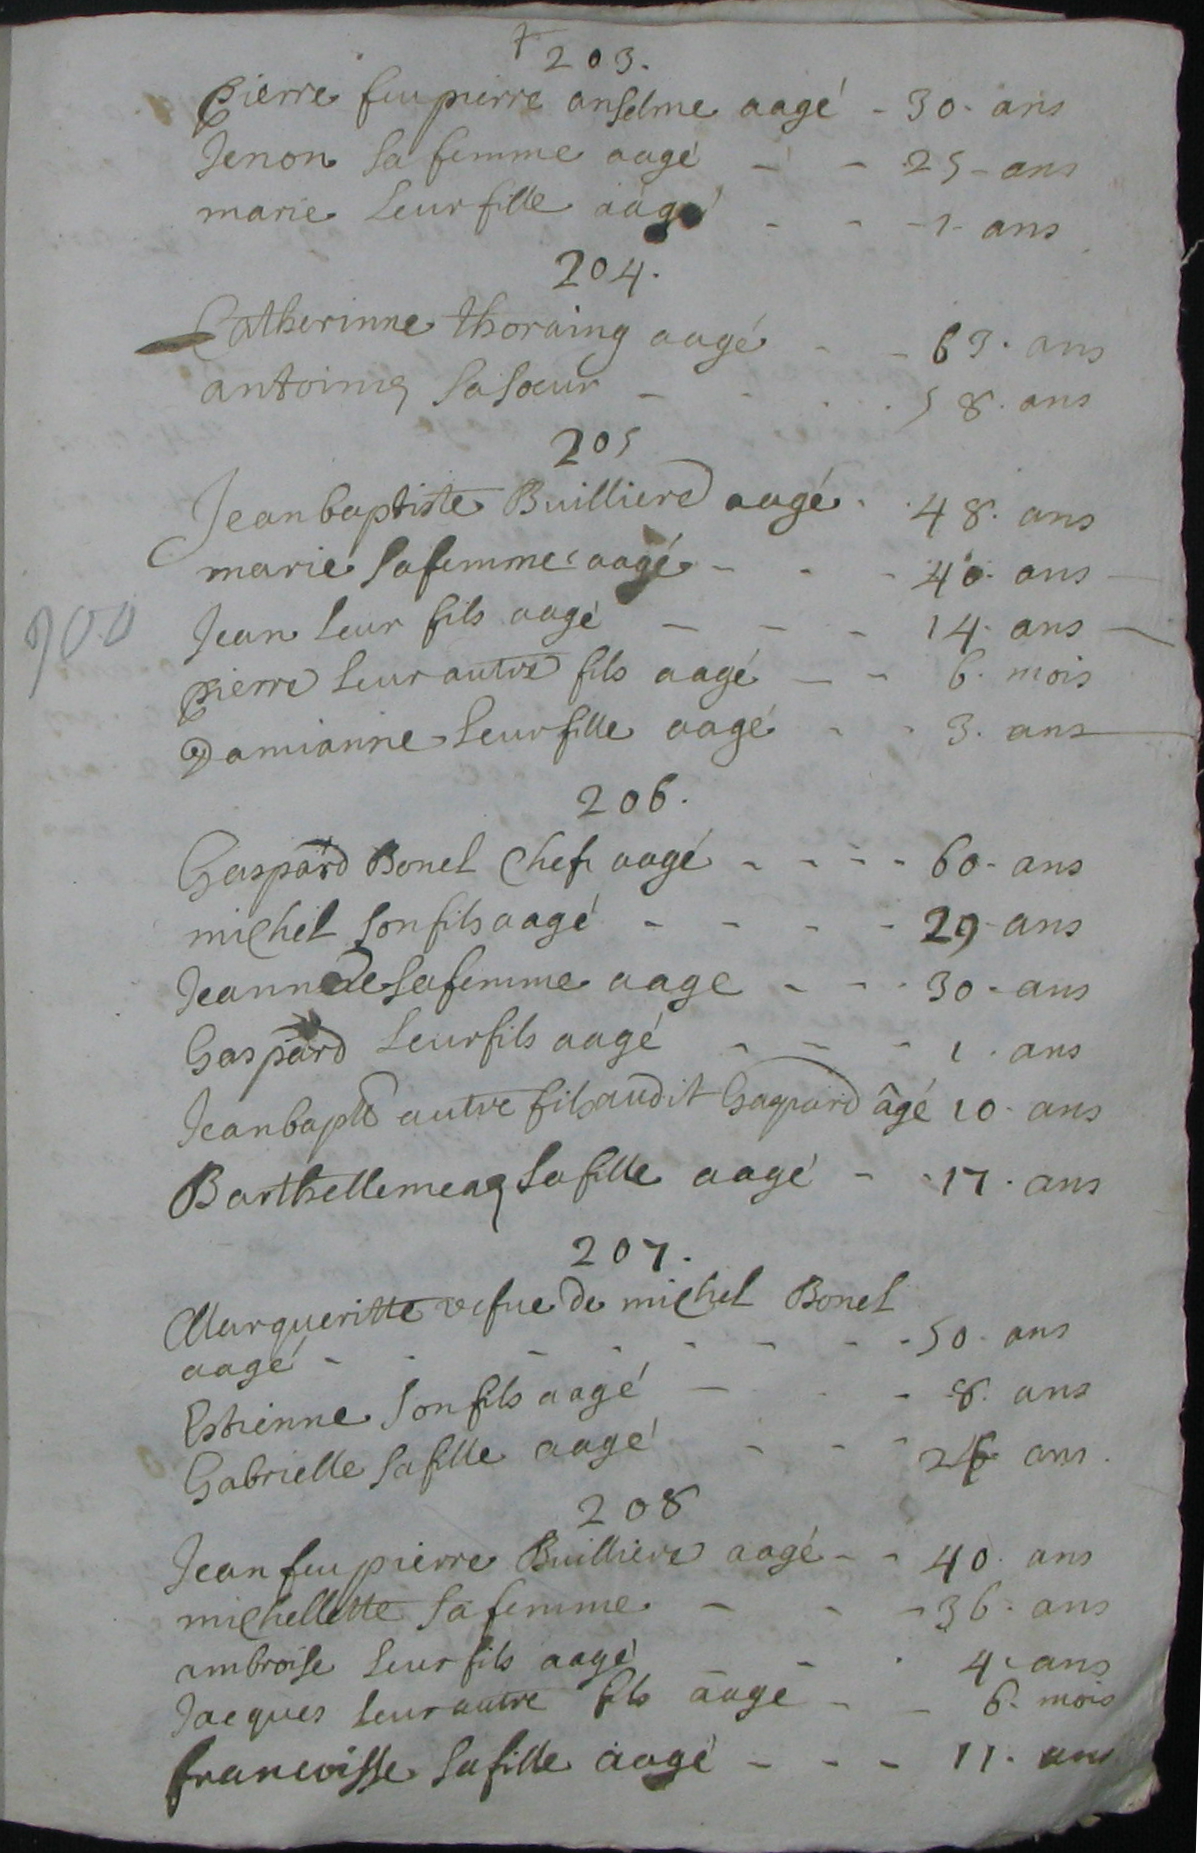 203.
pierre feu pierre anselme aagé - 30 - ans
Jenon sa femme aagé - - 25 - ans
marie leur fille aagé - - - 1 - ans
204.
Catherinne thoraing aagé - - 63 . ans
antoine sa soeur - - . . 58 . ans
205
Jean baptiste Buillierd aagé . . 48 . ans
marie sa femme aagé - - - 40 . ans
Jean leur fils aagé - - - 14 . ans
pierre leur autre fils aagé - - 6 . mois
Damianne leur fille aagé - - 3 . ans
206.
Gaspard Bonel chef aagé - - - - 60 - ans
michel son fils aagé - - - - 29 - ans
Jeanne sa femme aage - - . 30 - ans
Gaspard leur fils aagé - - - 1 . ans
Jean bapte autre fils audit Gaspard âgé 10 . ans
Barthellemea sa fille aagé - - 17 . ans
207.
Margueritte vefue de michel Bonel
aagé - - - - - - - 50 . ans
Estienne son fils aagé - - - 8 . ans
Gabrielle sa fille aagé - - - ans .
208
Jean feu pierre Builliere aagé - - 40 . ans
michellette sa femme - - - 36 . ans
ambroise leur fils aagé - . 4 . ans
Jacques leur autre fils aagé - - 6 . mois
francoisse sa fille aagé - - - 11 . ans